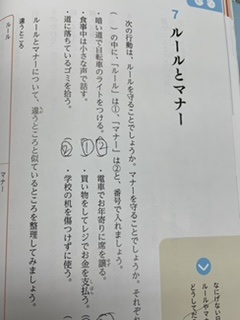 7 ルールとマナー
次の行動は、ルールを守ることでしょうか。マナーを守ることでしょうか。それぞ
()の中に、「ルール」は①、「マナー」は②と、番号で入れましょう。
・暗い道で自転車のライトをつける。(2)
・電車でお年寄りに席を譲る。
・食事中は小さな声で話す。(1)
・買い物をしてレジでお金を支払う。
・道に落ちているゴミを拾う。(②)
・学校の机を傷つけずに使う。(
ルールとマナーについて、違うところと似ているところを整理してみましょう。
違うところ
ルール
マナー
なにげない日
ルールやマナ
どうしてだ